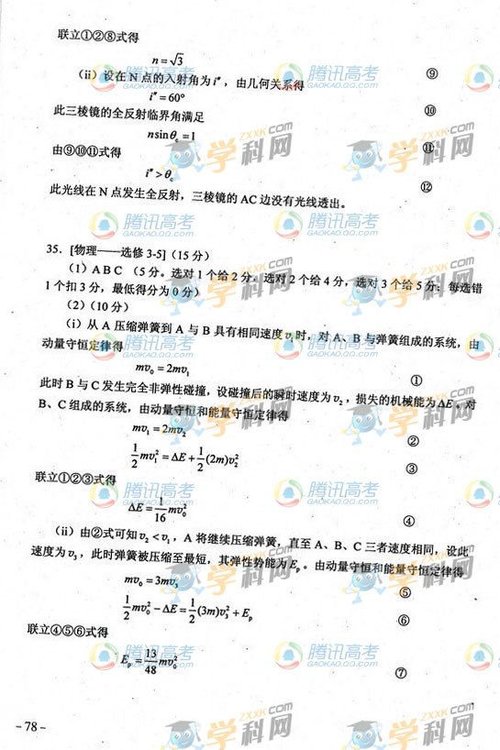 联立①②⑧式得
n=√3 ⑨
（ii）设在 N 点的入射角为 i″，由几何关系得
i″=60° ⑩
此三棱镜的全反射临界角满足
nsinθc=1 ⑪
由⑨⑩⑪式得
i″>θc
此光线在 N 点发生全反射，三棱镜的 AC 边没有光线透出。 ⑫
35. [物理——选修 3-5]（15 分）
（1）A B C （5 分。选对 1 个给 2 分，选对 2 个给 4 分，选对 3 个给 5 分；每选错
1 个扣 3 分，最低得分为 0 分）
（2）（10 分）
（i）从 A 压缩弹簧到 A 与 B 具有相同速度 v₁ 时，对 A、B 与弹簧组成的系统，由
动量守恒定律得
mv₀=2mv₁ ①
此时 B 与 C 发生完全非弹性碰撞，设碰撞后的瞬时速度为 v₂，损失的机械能为 ΔE。对
B、C 组成的系统，由动量守恒和能量守恒定律得
mv₁=2mv₂ ②
1/2 mv₁²=ΔE+1/2 (2m)v₂² ③
联立①②③式得
ΔE=1/16 mv₀² ④
（ii）由②式可知 v₂<v₁，A 将继续压缩弹簧，直至 A、B、C 三者速度相同，设此
速度为 v₃，此时弹簧被压缩至最短，其弹性势能为 Ep。由动量守恒和能量守恒定律得
mv₀=3mv₃ ⑤
1/2 mv₀²-ΔE=1/2 (3m)v₃²+Ep ⑥
联立④⑤⑥式得
Ep=13/48 mv₀² ⑦
- 78 -
腾讯高考
GAOKAO.QQ.COM
学科网
ZXXK.COM